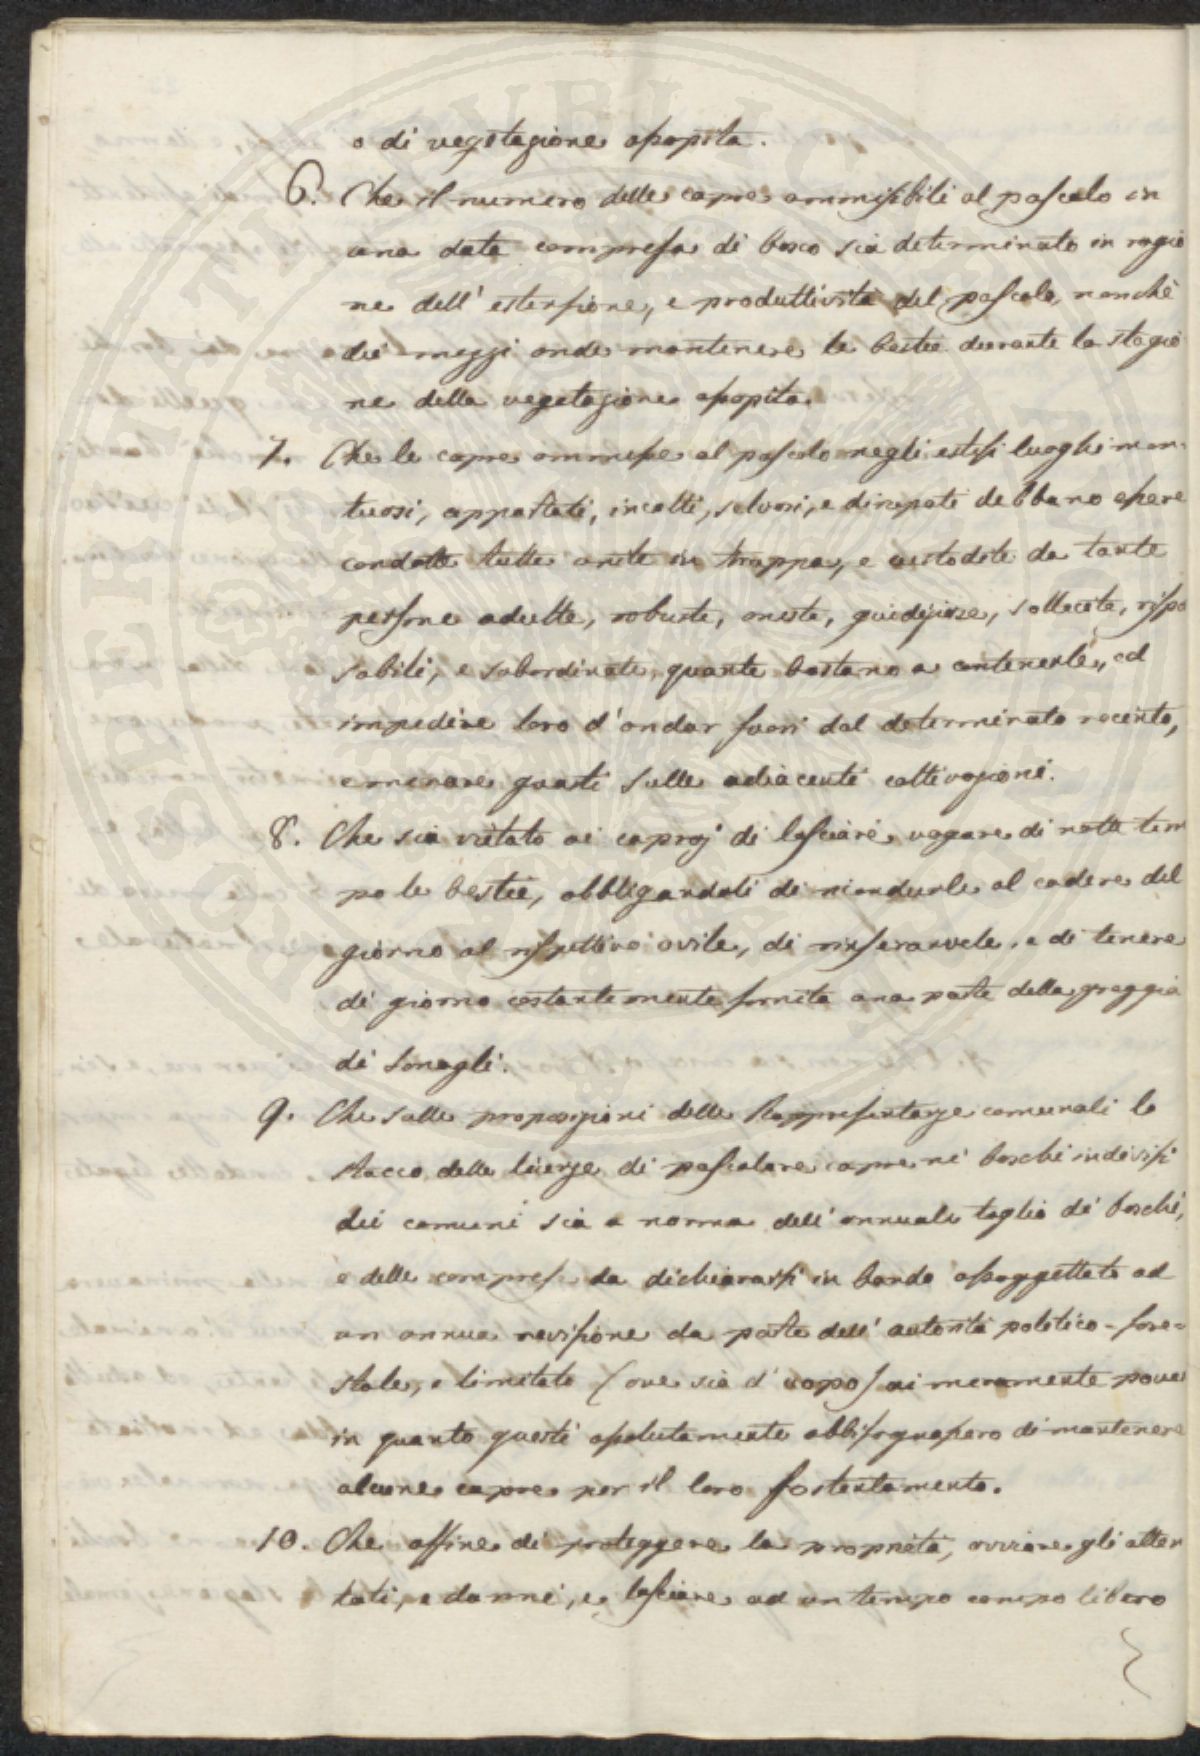 o di vegetazione assopita.
6. Che il numero delle capre ammissibili al pascolo in
una data compresa di bosco sia determinato in ragio
ne dell' estensione, e produttività del pascolo, nonchè
dei mezzi onde mantenere le bestie durante la stagio
ne della vegetazione assopita.
7. Che le capre ammesse al pascolo negli estesi luoghi mon-
tuosi, appartati, incolti, selvosi, e dirupati debbano essere
condotte tutte unite in truppa, e custodite da tante
persone adulte, robuste, oneste, giudiziose, sollecite, respo
sabili, e subordinate, quante bastano a contenerle, ed
impedire loro d'andar fuori dal determinato recinto,
e menare guasti sulle adiacenti coltivazioni.
8. Che sia vietato ai capraj di lasciare vagare di notte tem
po le bestie, obbligandoli di ricondurle al cadere del
giorno al rispettivo ovile, di rinserarvele, e di tenere
di giorno costantemente fornita una parte della greggia
di sonagli.
9. Che sulle proposizioni delle Rappresentanze comunali lo
stacco delle licenze di pascolare capre ne' boschi indivisi
dei comuni sia a norma dell' annuale taglio di boschi,
e delle comprese da dichiararsi in bando assoggettato ad
un annua revisione da parte dell' autorità politico-fore=
stale, e limitato (ove sia d' uopo) ai meramente poveri
in quanto questi assolutamente abbisognassero di mantenere
alcune capre per il loro sostentamento.
10. Che affine di proteggere la proprietà, ovviare gli atten
tati, e danni, e lasciare ad un tempo campo libero